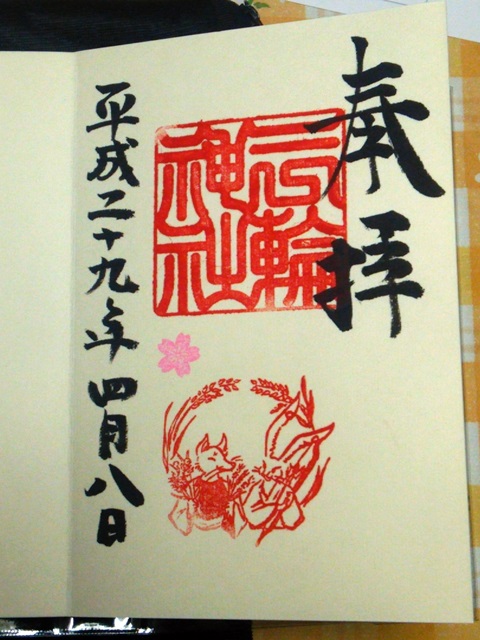 奉拝
輪
神社
平成二十九年四月八日